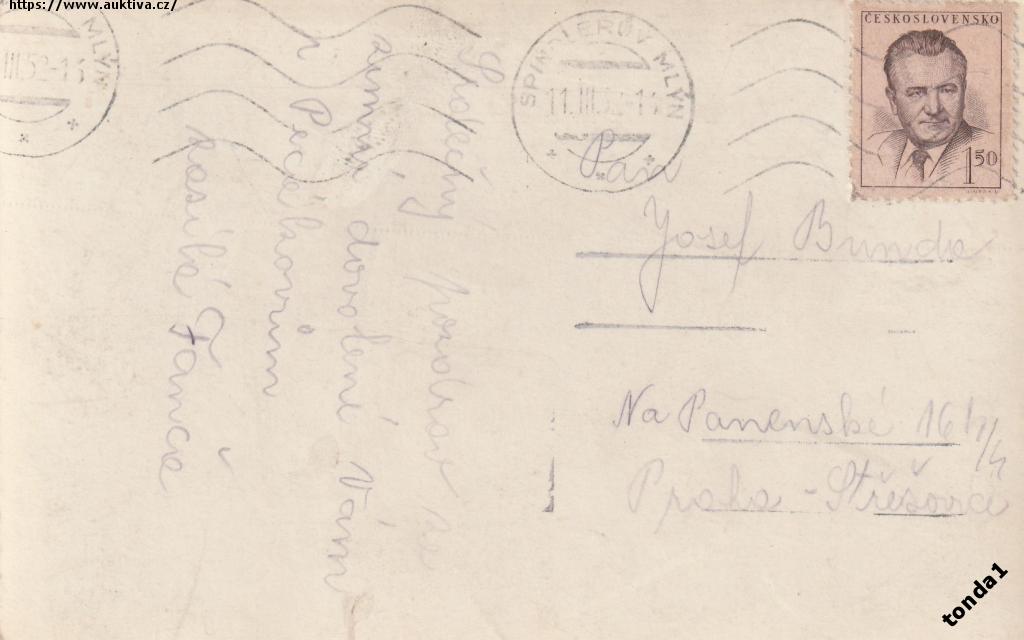 https://www.auktiva.cz/
MLÝN
III.52-1
Srdečný pozdrav ze
zimní dovolené Vám
i Pecákovům
zasílá Fanča
SPINDLERŮV MLÝN
11.III.52-1
ČESKOSLOVENSKO
1 50
Pan
Josef Bunda
Na Panenské 16
Praha - Střešovice
tonda1